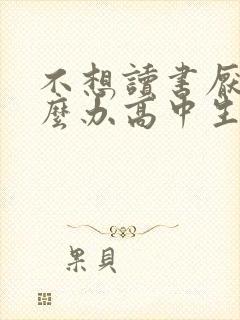 不想讀書厭
麼办高中生
果貝